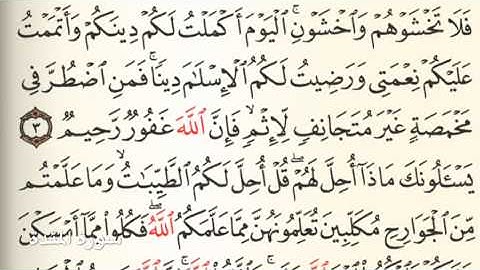 فَلَا تَخْشَوْهُمْ وَٱخْشَوْنِ ۚ ٱلْيَوْمَ أَكْمَلْتُ لَكُمْ دِينَكُمْ وَأَتْمَمْتُ
عَلَيْكُمْ نِعْمَتِى وَرَضِيتُ لَكُمُ ٱلْإِسْلَٰمَ دِينًا ۚ فَمَنِ ٱضْطُرَّ فِى
مَخْمَصَةٍ غَيْرَ مُتَجَانِفٍ لِّإِثْمٍ ۙ فَإِنَّ ٱللَّهَ غَفُورٌ رَّحِيمٌ ٣
يَسْـَٔلُونَكَ مَاذَآ أُحِلَّ لَهُمْ ۖ قُلْ أُحِلَّ لَكُمُ ٱلطَّيِّبَٰتُ ۙ وَمَا عَلَّمْتُم
مِّنَ ٱلْجَوَارِحِ مُكَلِّبِينَ تُعَلِّمُونَهُنَّ مِمَّا عَلَّمَكُمُ ٱللَّهُ ۖ فَكُلُوا۟ مِمَّآ أَمْسَكْنَ
سورة المائدة